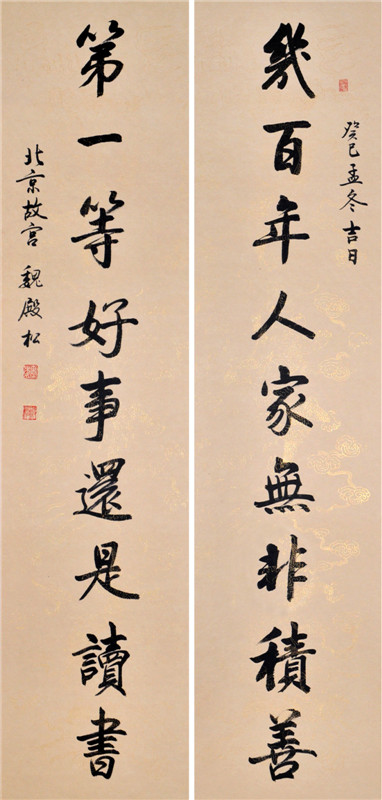 癸巳孟冬吉日
幾百年人家無非積善
第一等好事還是讀書
北京故宫 魏殿松